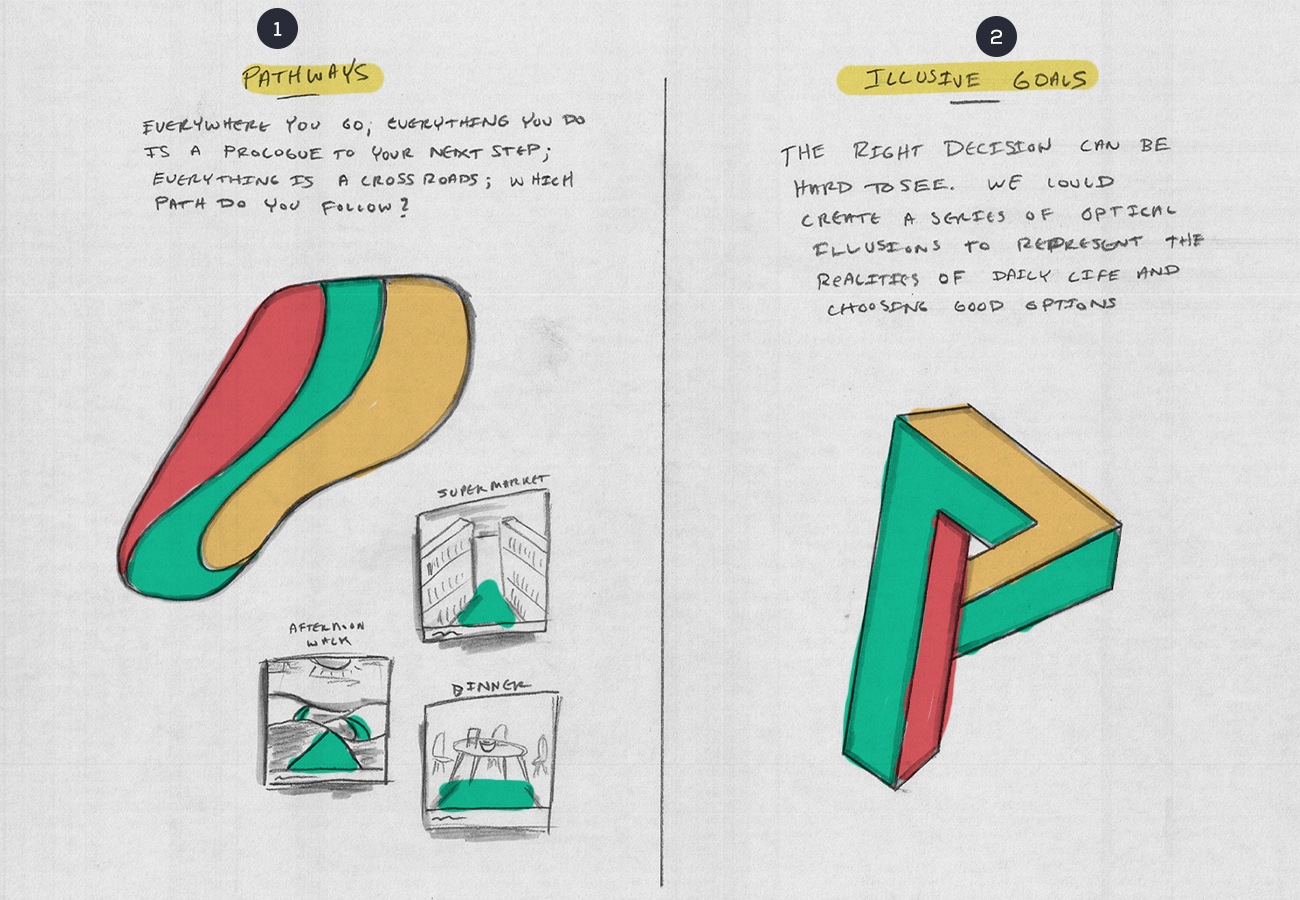 1
PATHWAYS
EVERYWHERE YOU GO, EVERYTHING YOU DO
IS A PROLOGUE TO YOUR NEXT STEP;
EVERYTHING IS A CROSS ROADS; WHICH
PATH DO YOU FOLLOW?
SUPERMARKET
AFTERNOON
WALK
DINNER
2
ILLUSIVE GOALS
THE RIGHT DECISION CAN BE
HARD TO SEE. WE COULD
CREATE A SERIES OF OPTICAL
ILLUSIONS TO REPRESENT THE
REALITIES OF DAILY LIFE AND
CHOOSING GOOD OPTIONS